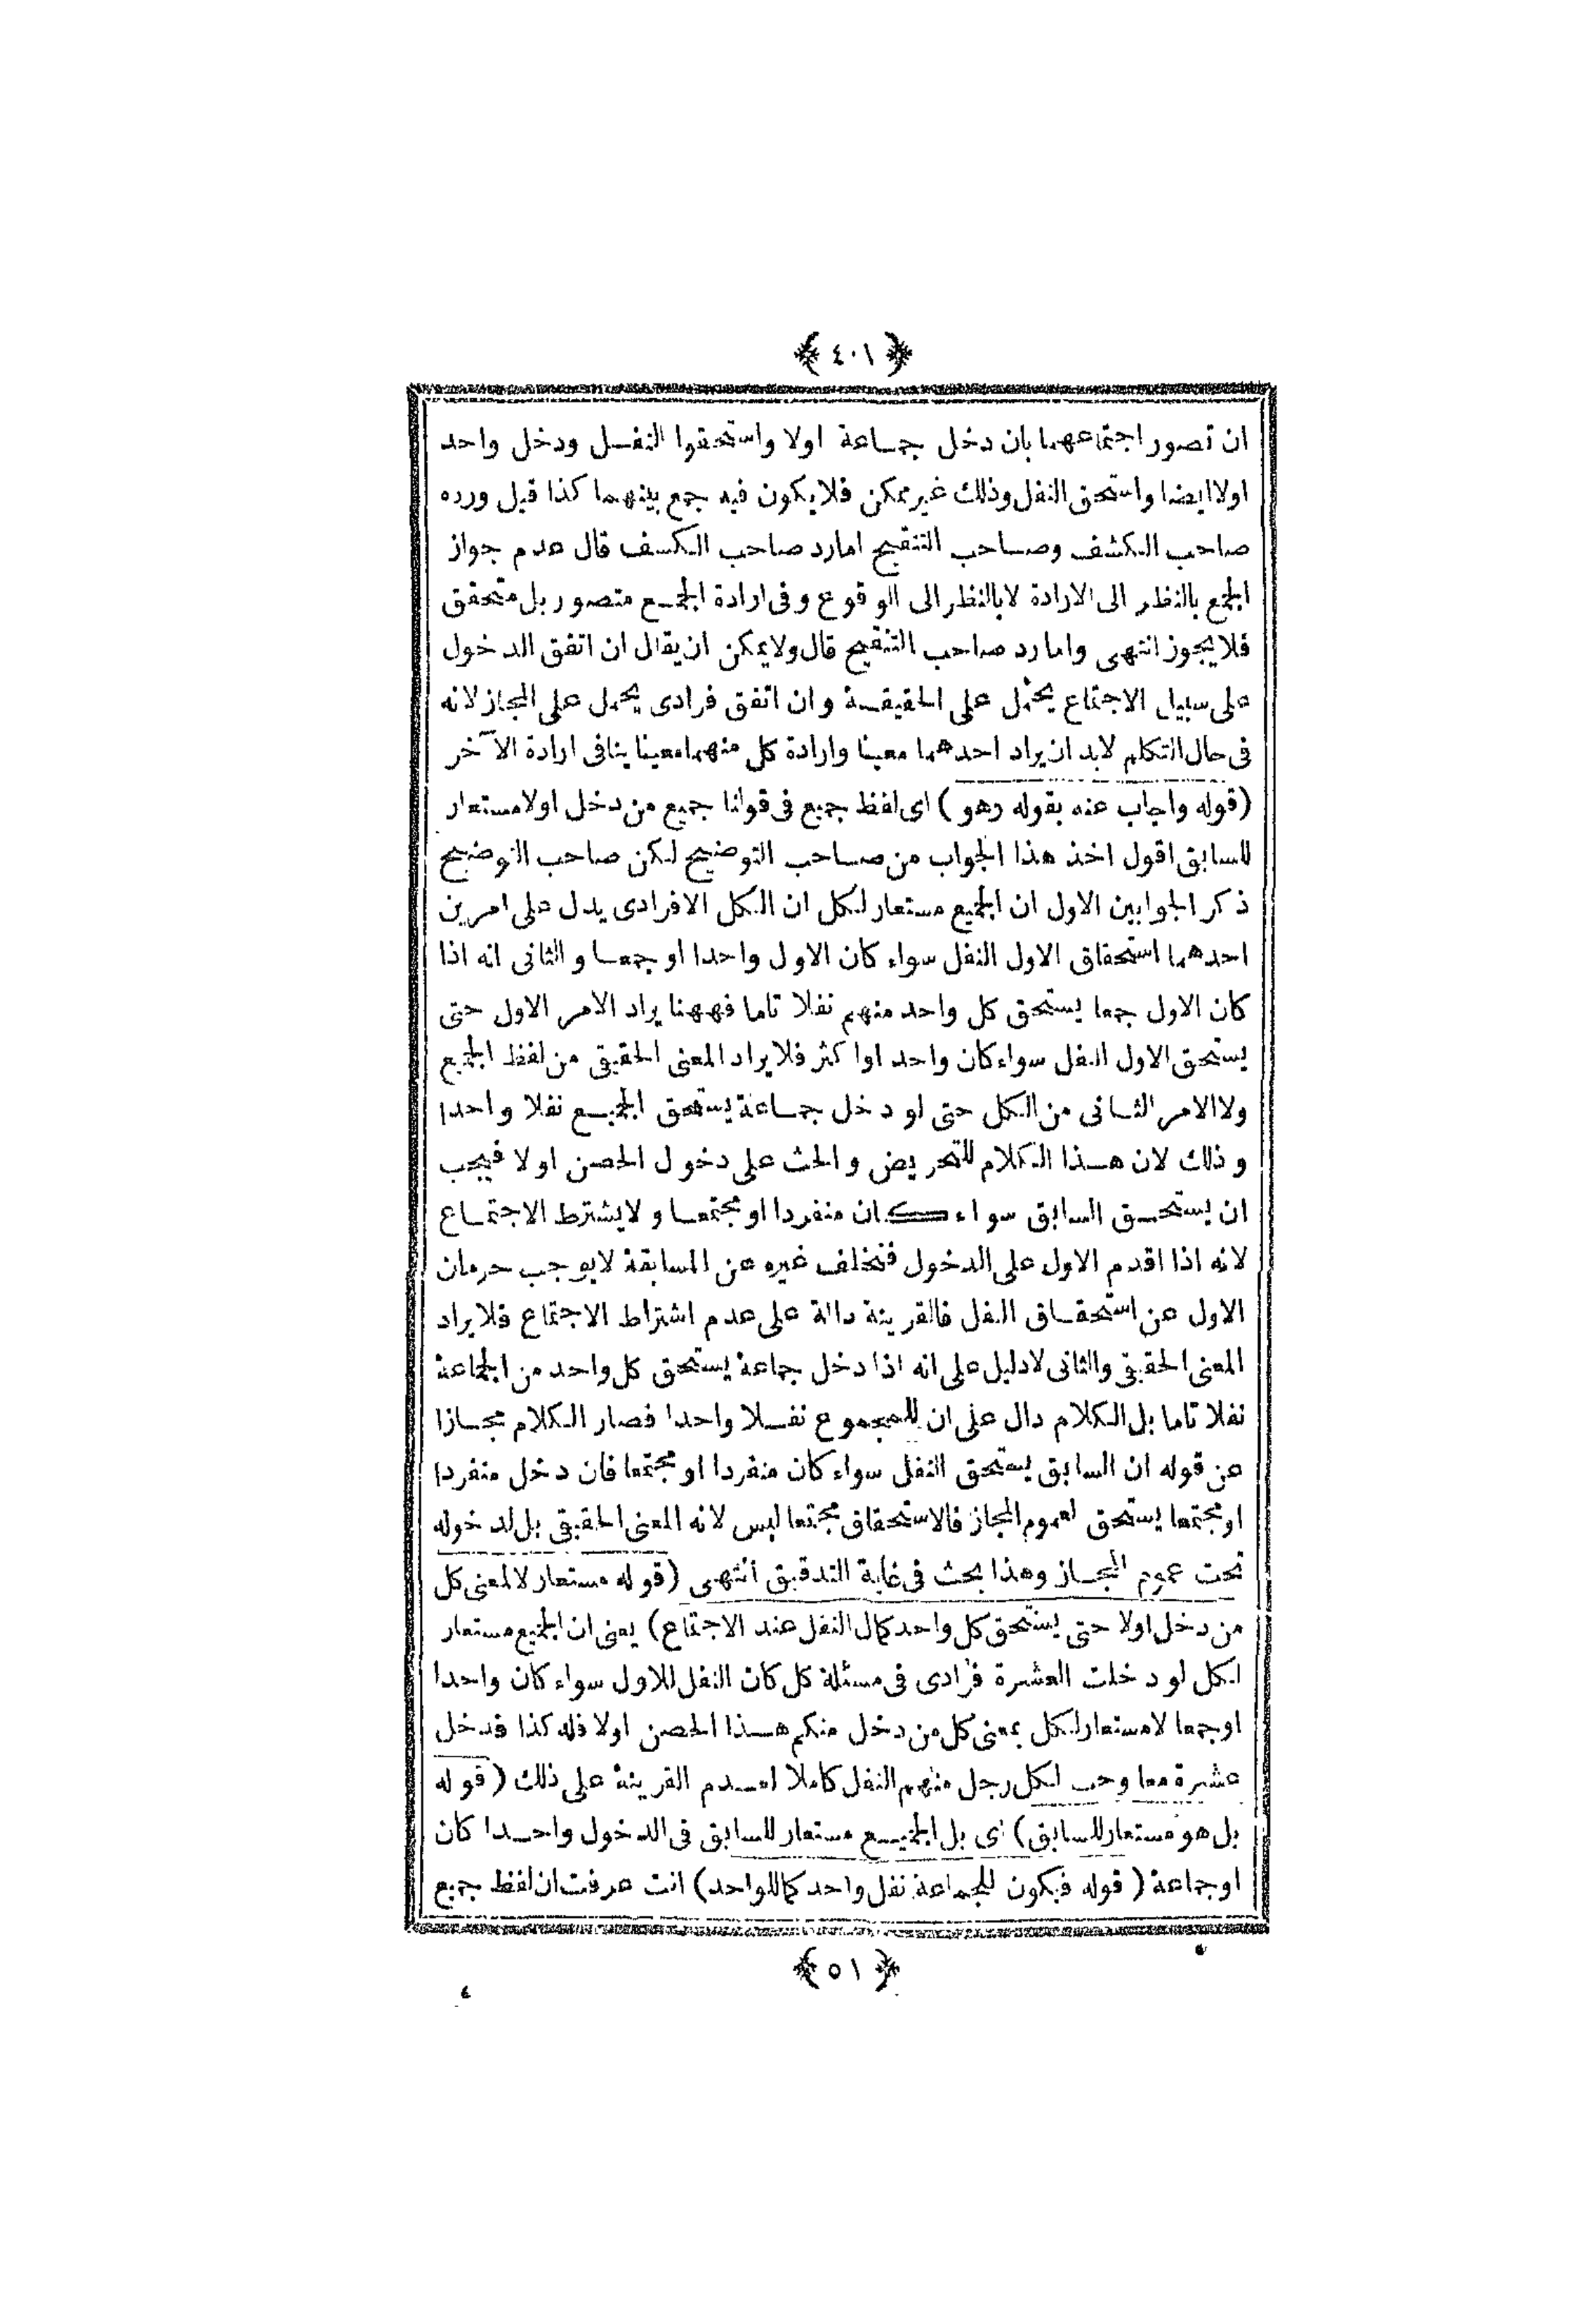 ﴿ ٤٠١ ﴾
ان تصور اجتماعهما بان دخل جماعة اولا واستحقوا النفل ودخل واحد
اولا ايضا واستحق النفل وذلك غير ممكن فلا يكون فيه جمع بينهما كذا قيل ورده
صاحب الكشف وصاحب التنقيح اما رد صاحب الكسف قال عدم جواز
الجمع بالنظر الى الارادة لا بالنظر الى الوقوع وفى ارادة الجمع متصور بل متحقق
فلا يجوز انتهى واما رد صاحب التنقيح قال ولا يمكن ان يقال ان اتفق الدخول
على سبيل الاجتماع يحمل على الحقيقة وان اتفق فرادى يحمل على المجاز لانه
فى حال التكلم لابد ان يراد احدهما معينا وارادة كل منهما معينا ينافى ارادة الآخر
(قوله واجاب عنه بقوله وهو) اى لفظ جميع فى قولنا جميع من دخل اولا مستعار
للسابق اقول اخذ هذا الجواب من صاحب التوضيح لكن صاحب التوضيح
ذكر الجوابين الاول ان الجميع مستعار لكل ان الكل الافرادى يدل على امرين
احدهما استحقاق الاول النفل سواء كان الاول واحدا او جمعا والثانى انه اذا
كان الاول جمعا يستحق كل واحد منهم نفلا تاما فههنا يراد الامر الاول حتى
يستحق الاول النفل سواء كان واحد او اكثر فلا يراد المعنى الحقيقى من لفظ الجميع
ولا الامر الثانى من الكل حتى لو دخل جماعة يستحق الجميع نفلا واحدا
وذلك لان هذا الكلام للتحريض والحث على دخول الحصن اولا فيجب
ان يستحق السابق سواء كان منفردا او مجتمعا ولا يشترط الاجتماع
لانه اذا اقدم الاول على الدخول فتخلف غيره عن المسابقة لا يوجب حرمان
الاول عن استحقاق النفل فالقرينة دالة على عدم اشتراط الاجتماع فلا يراد
المعنى الحقيقى والثانى لا دليل على انه اذا دخل جماعة يستحق كل واحد من الجماعة
نفلا تاما بل الكلام دال على ان للمجموع نفلا واحدا فصار الكلام مجازا
عن قوله ان السابق يستحق النفل سواء كان منفردا او مجتمعا فان دخل منفردا
او مجتمعا يستحق لعموم المجاز فالاستحقاق مجتمعا ليس لانه المعنى الحقيقى بل لدخوله
تحت عموم المجاز وهذا بحث فى غاية التدقيق انتهى (قوله مستعار لا لمعنى كل
من دخل اولا حتى يستحق كل واحد كمال النفل عند الاجتماع) يعنى ان الجميع مستعار
لكل لو دخلت العشرة فرادى فى مسئلة كل كان النفل للاول سواء كان واحدا
او جمعا لا مستعار لكل بمعنى كل من دخل منكم هذا الحصن اولا فله كذا فدخل
عشرة معا وجب لكل رجل منهم النفل كاملا لعدم القرينة على ذلك (قوله
بل هو مستعار للسابق) اى بل الجميع مستعار للسابق فى الدخول واحدا كان
او جماعة (قوله فيكون للجماعة نفل واحد كما للواحد) انت عرفت ان لفظ جميع
﴿ ٥١ ﴾